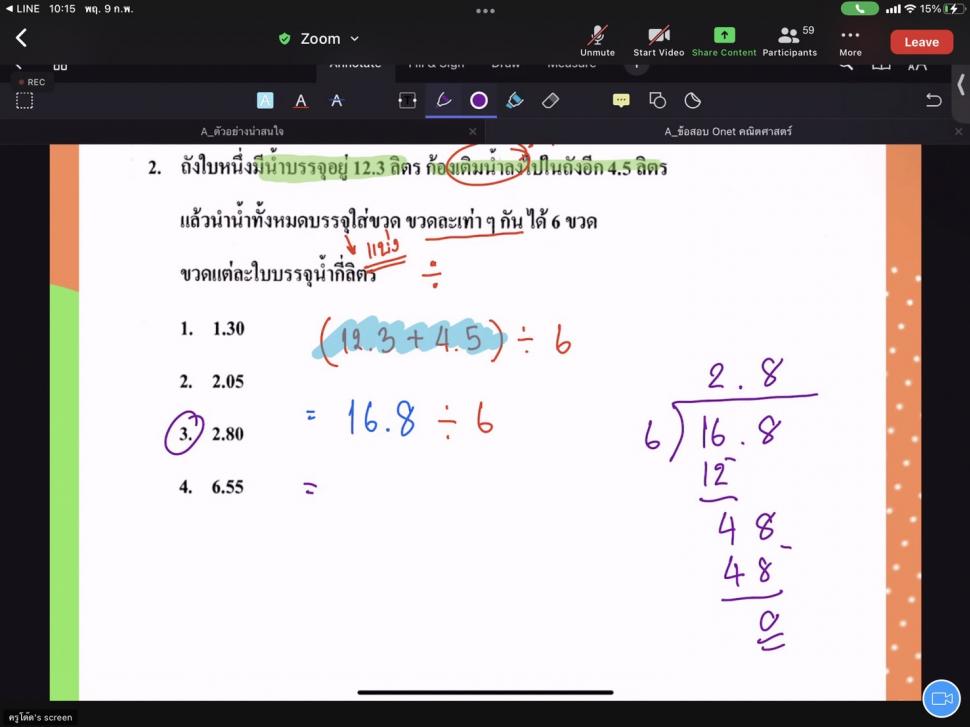 LINE 10:15 พฤ. 9 ก.พ. 15%
Zoom
Unmute Start Video Share Content Participants 59 More Leave
REC
Annotate Fill & Sign Draw Measure
A_ตัวอย่างน่าสนใจ A_ข้อสอบ Onet คณิตศาสตร์
2. ถังใบหนึ่งมีน้ำบรรจุอยู่ 12.3 ลิตร ก้องเติมน้ำลงไปในถังอีก 4.5 ลิตร
แล้วนำน้ำทั้งหมดบรรจุใส่ขวด ขวดละเท่า ๆ กัน ได้ 6 ขวด
แบ่ง
ขวดแต่ละใบบรรจุน้ำกี่ลิตร ÷
1. 1.30
(12.3 + 4.5) ÷ 6
2. 2.05
= 16.8 ÷ 6
3. 2.80
4. 6.55 =
2.8
6 ) 16.8
12 -
48 -
48
0
ครูโต๊ด's screen